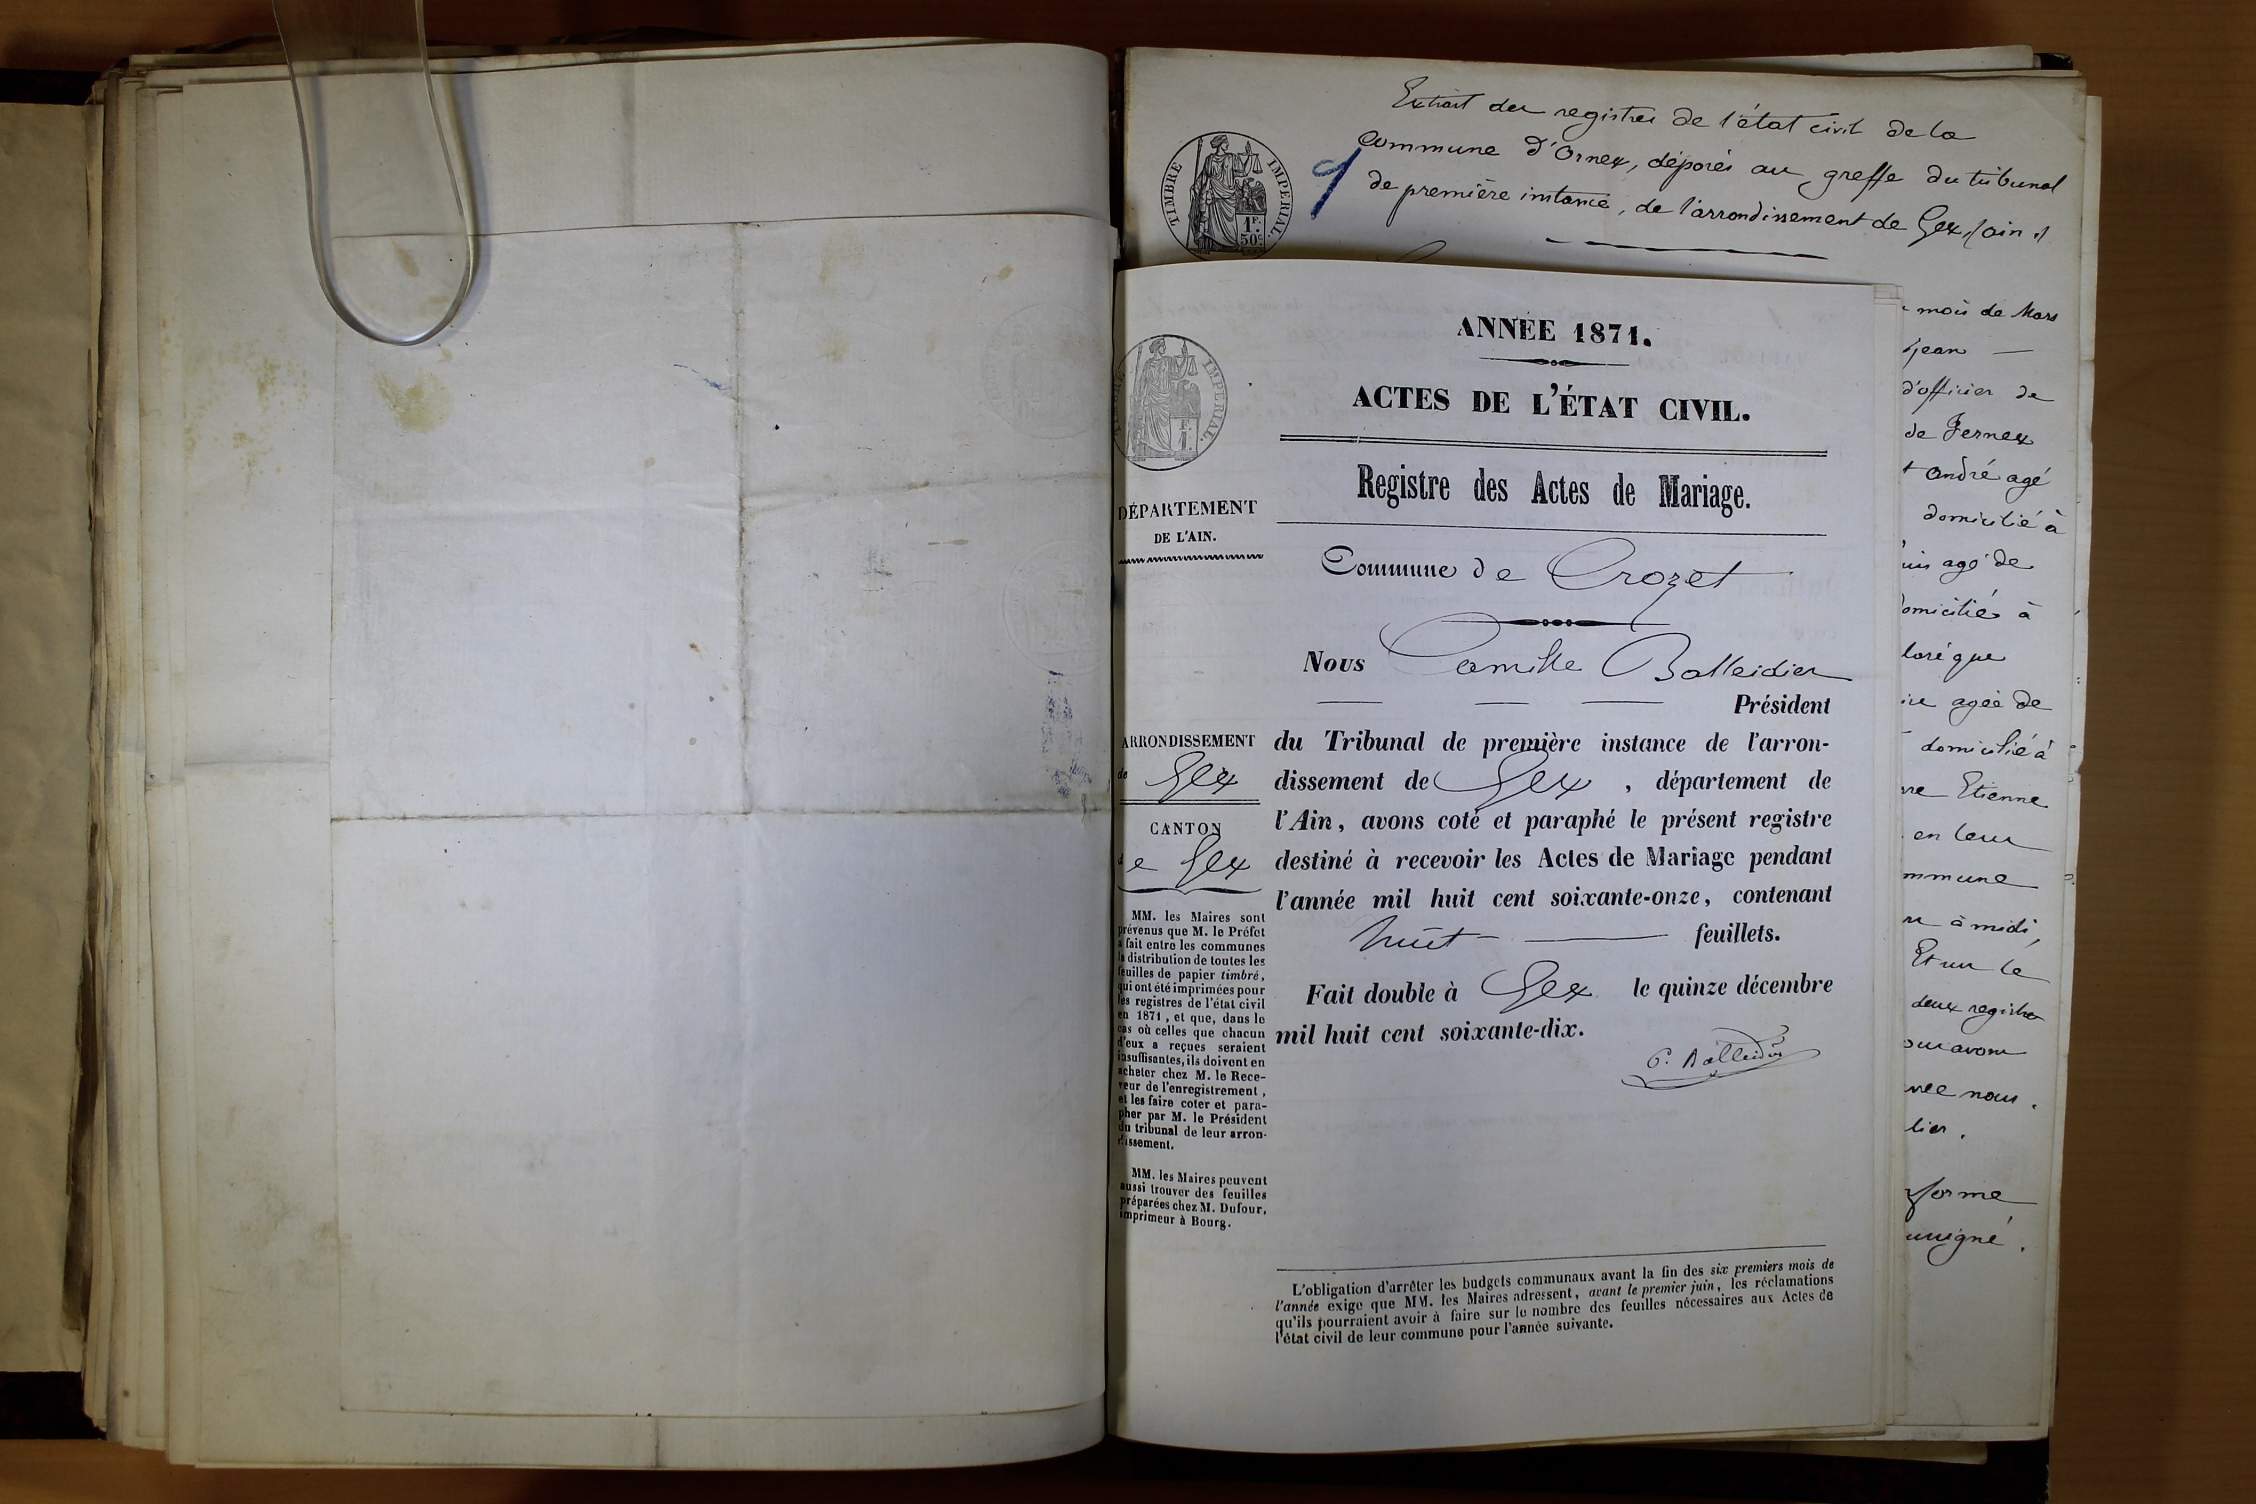 Extrait des registres de l'état civil de la
commune d'Ornex, déposés au greffe du tribunal
de première instance, de l'arrondissement de Gex, (ain)
TIMBRE IMPÉRIAL.
1F.
50c
9
mois de Mars
Jean —
d'officier de
de Fernex
andré agé
domicilié à
agé de
domicilié à
agée de
domicilié à
Etienne
en leur
à midi,
Et sur le
deux registres
avons
nous.
ANNÉE 1871.
ACTES DE L'ÉTAT CIVIL.
Registre des Actes de Mariage.
Commune de Crozet
Nous Camille Balleidier
— — — Président
du Tribunal de première instance de l'arron-
dissement de Gex, département de
l'Ain, avons coté et paraphé le présent registre
destiné à recevoir les Actes de Mariage pendant
l'année mil huit cent soixante-onze, contenant
huit — feuillets.
Fait double à Gex le quinze décembre
mil huit cent soixante-dix.
C. Balleidier
IMPÉRIAL.
F.
1.
DÉPARTEMENT
DE L'AIN.
ARRONDISSEMENT
de Gex
CANTON
de Gex
MM. les Maires sont
prévenus que M. le Préfet
a fait entre les communes
la distribution de toutes les
feuilles de papier timbré,
qui ont été imprimées pour
les registres de l'état civil
en 1871, et que, dans le
cas où celles que chacun
d'eux a reçues seraient
insuffisantes, ils doivent en
acheter chez M. le Rece-
veur de l'enregistrement,
et les faire coter et para-
pher par M. le Président
du tribunal de leur arron-
dissement.
MM. les Maires peuvent
aussi trouver des feuilles
préparées chez M. Dufour,
imprimeur à Bourg.
L'obligation d'arrêter les budgets communaux avant la fin des six premiers mois de
l'année exige que MM. les Maires adressent, avant le premier juin, les réclamations
qu'ils pourraient avoir à faire sur le nombre des feuilles nécessaires aux Actes de
l'état civil de leur commune pour l'année suivante.